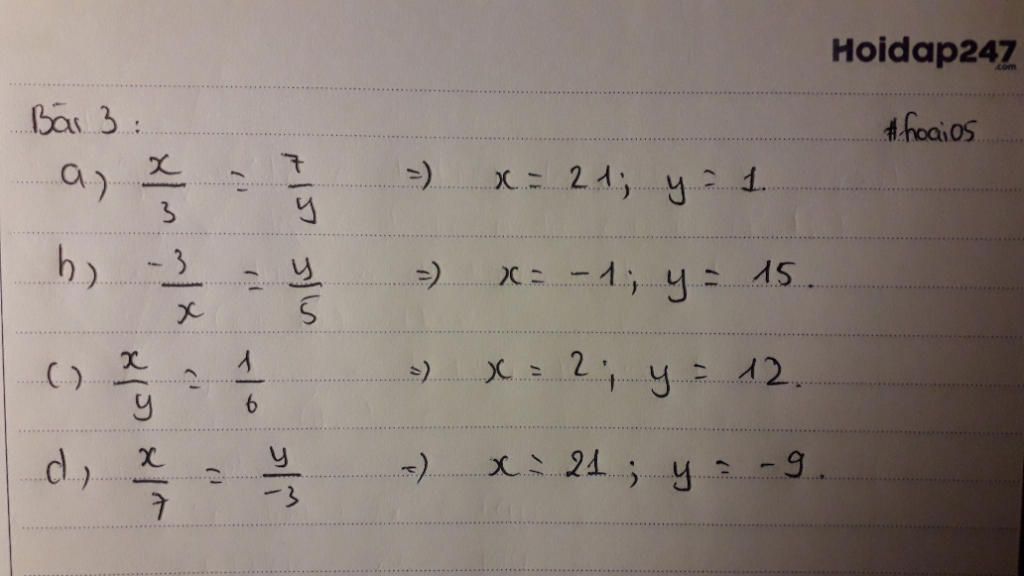 Hoidap247
.com
Bài 3 :
#hoai05
a) x/3 = 7/y => x = 21; y = 1.
b) -3/x = y/5 => x = -1; y = 15.
c) x/y = 1/6 => x = 2; y = 12.
d) x/7 = y/-3 => x = 21; y = -9.